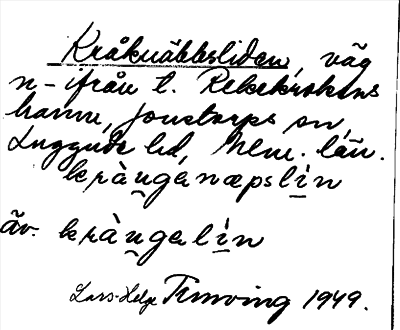 Kråknäbbsliden, väg
n-ifrån t. Rekekrokens
hamn, Jonstorps sn,
Luggude hd, Mlm. län.
kràngenæpslìn
äv. kràngelìn
Lars-Helge Timoving 1949.